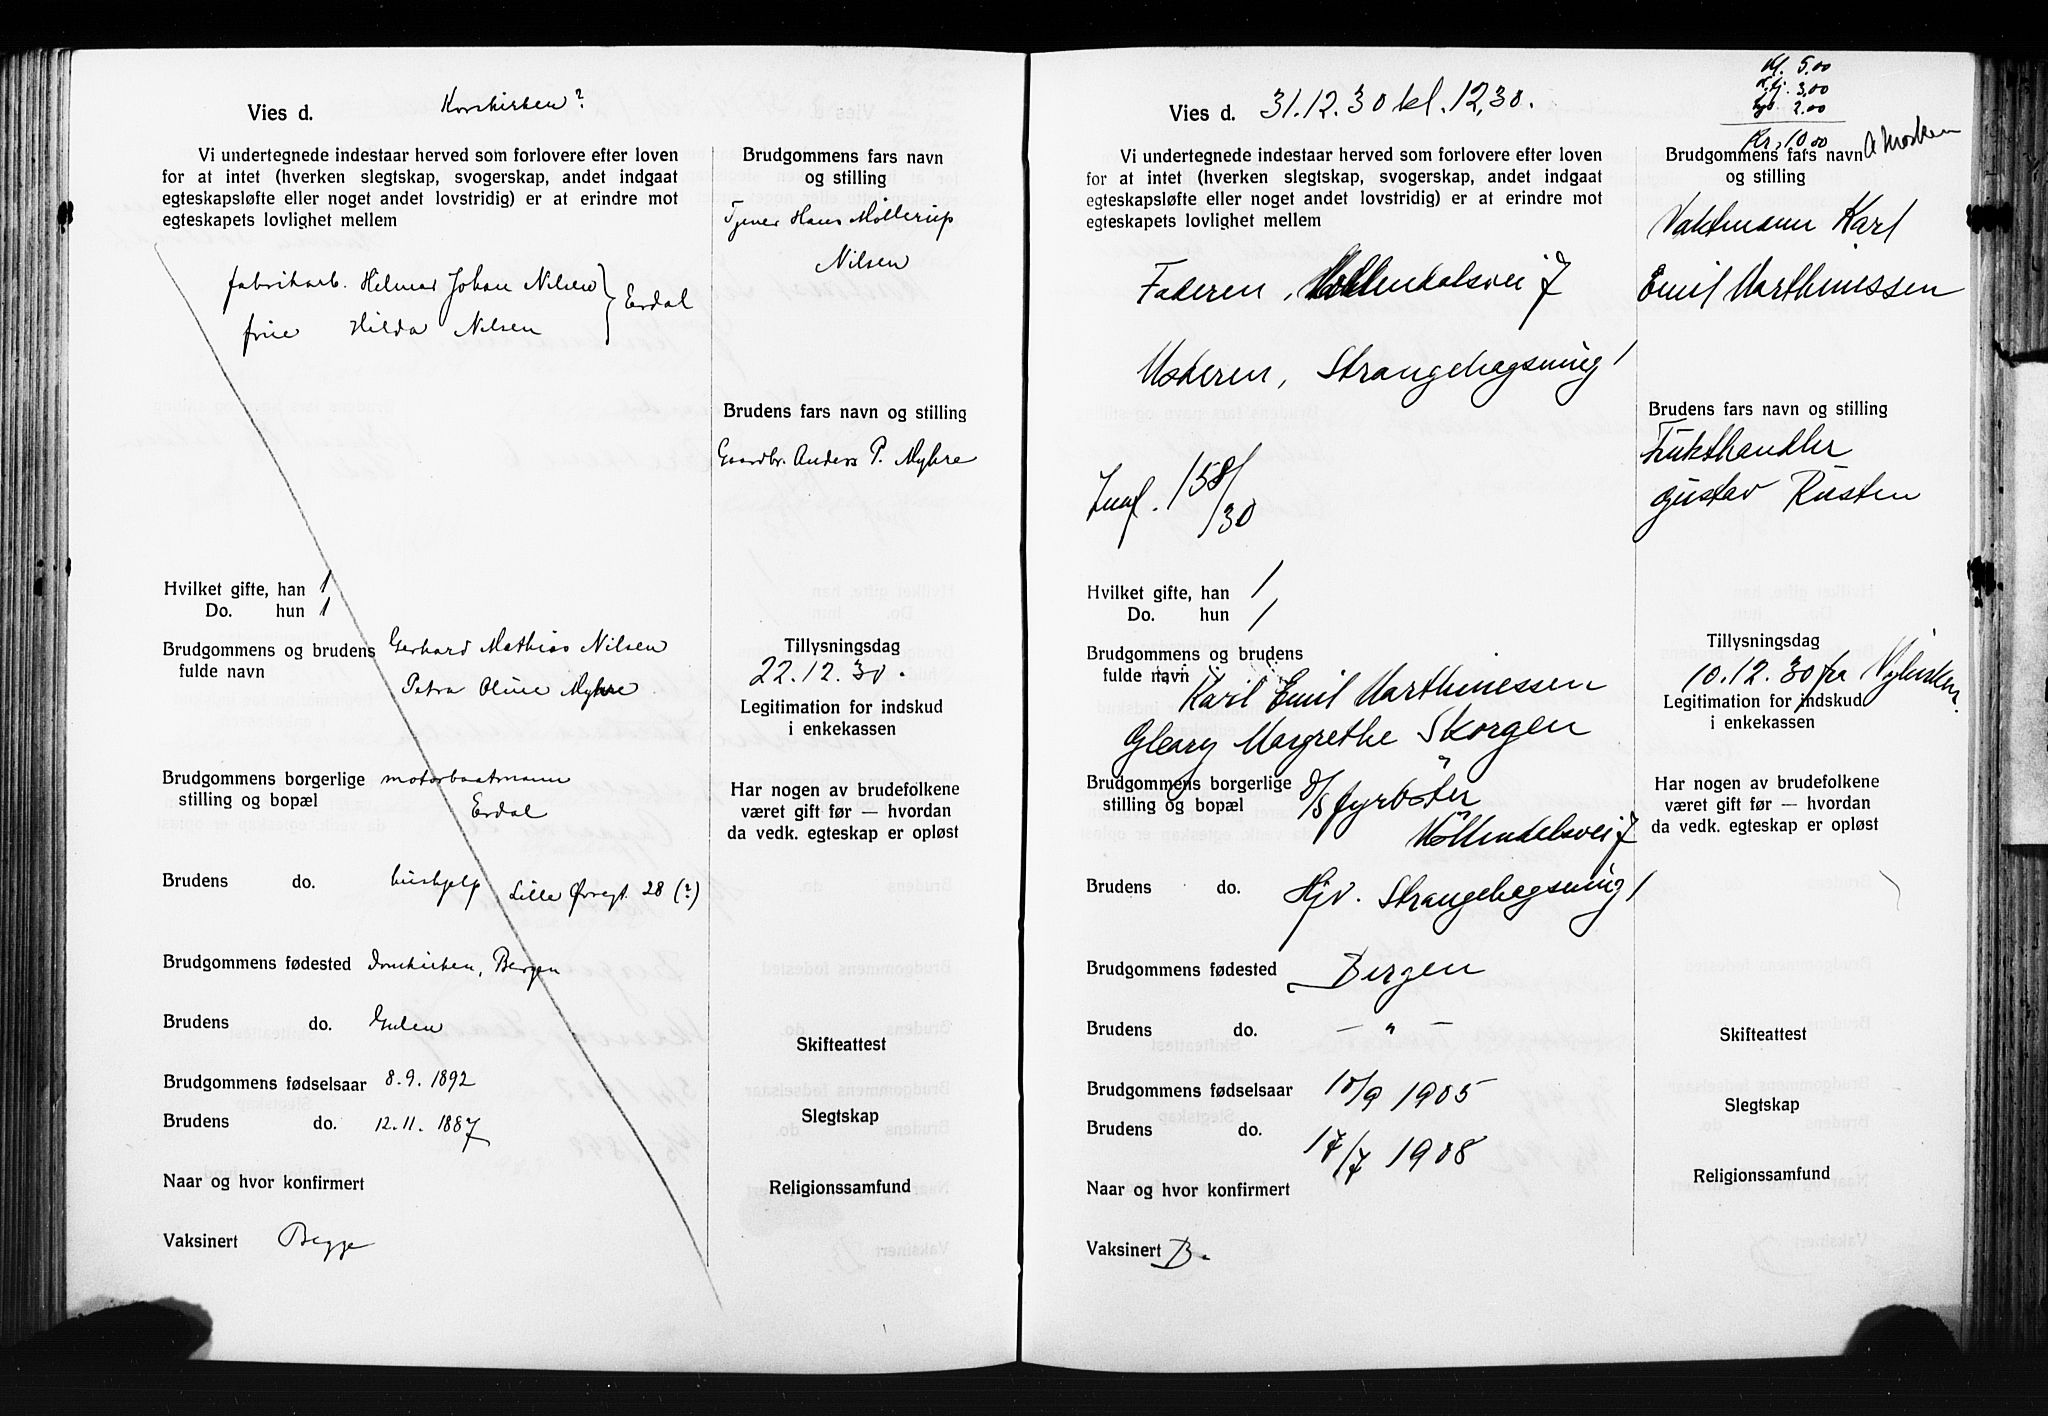 Vies d. Korskirken?
Vi undertegnede indestaar herved som forlovere efter loven
for at intet (hverken slegtskap, svogerskap, andet indgaat
egteskapsløfte eller noget andet lovstridig) er at erindre mot
egteskapets lovlighet mellem
fabrikarb. Helmer Johan Nilsen } Erdal
frue Hilda Nilsen
Brudgommens fars navn
og stilling
Tjener Hans Møllerup
Nilsen
Brudens fars navn og stilling
Gaardbr. Anders P. Myhre
Hvilket gifte, han 1
Do. hun 1
Brudgommens og brudens Gerhard Mathias Nilsen
fulde navn Petra Oline Myhre
Tillysningsdag
22.12.30.
Legitimation for indskud
i enkekassen
Brudgommens borgerlige motorbaatmann
stilling og bopæl Erdal
Har nogen av brudefolkene
været gift før — hvordan
da vedk. egteskap er opløst
Brudens do. hushjelp Lille Øvregt. 28 (?)
Brudgommens fødested Domkirken, Bergen
Brudens do. Gulen
Skifteattest
Brudgommens fødselsaar 8.9.1892
Brudens do. 12.11.1887
Slegtskap
Naar og hvor konfirmert
Religionssamfund
Vaksinert Begge
Vies d. 31.12.30 kl. 12,30.
5,00
3,00
2.00
Kr. 10.00
Vi undertegnede indestaar herved som forlovere efter loven
for at intet (hverken slegtskap, svogerskap, andet indgaat
egteskapsløfte eller noget andet lovstridig) er at erindre mot
egteskapets lovlighet mellem
Faderen, Møllendalsvei 7
Moderen, Strangehagsmug 1
Brudgommens fars navn
og stilling
Vaktmann Karl
Emil Marthinessen
Brudens fars navn og stilling
Frukthandler
Gustav Rusten
158/
/30
Hvilket gifte, han 1
Do. hun 1
Brudgommens og brudens
fulde navn Karl Emil Marthinessen
Gleary Margrethe Skorgen
Tillysningsdag
10.12.30 fra Nykirken.
Legitimation for indskud
i enkekassen
Brudgommens borgerlige D/S fyrbøter
stilling og bopæl Møllendalsvei 7
Har nogen av brudefolkene
været gift før — hvordan
da vedk. egteskap er opløst
Brudens do. Hjv. Strangehagsmug 1
Brudgommens fødested Bergen
Brudens do. — " —
Skifteattest
Brudgommens fødselsaar 10/9 1905
Brudens do. 17/7 1908
Slegtskap
Naar og hvor konfirmert
Religionssamfund
Vaksinert B.